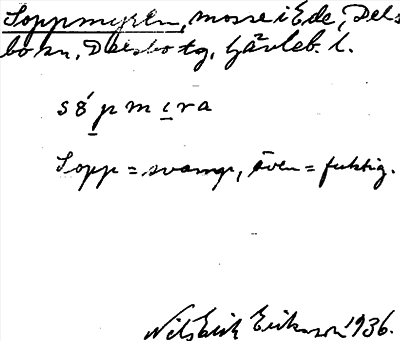 Soppmyren, mosse i Ede, Dels
bo sn, Delsbo tg, Gävleb. l.
Sopp = svamp, även = fuktig.
Nils Erik Eriksson 1936.